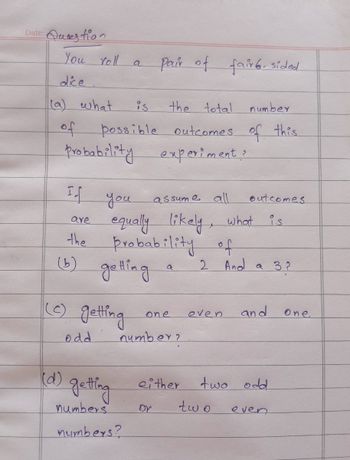 Date: Question
You roll a pair of fair 6-sided
dice.
(a) what is the total number
of possible outcomes of this
probability experiment?
If you assume all outcomes
are equally likely, what is
the probability of
(b) getting a 2 And a 3?
(c) getting one even and one
odd number?
(d) getting either two odd
numbers or two even
numbers?